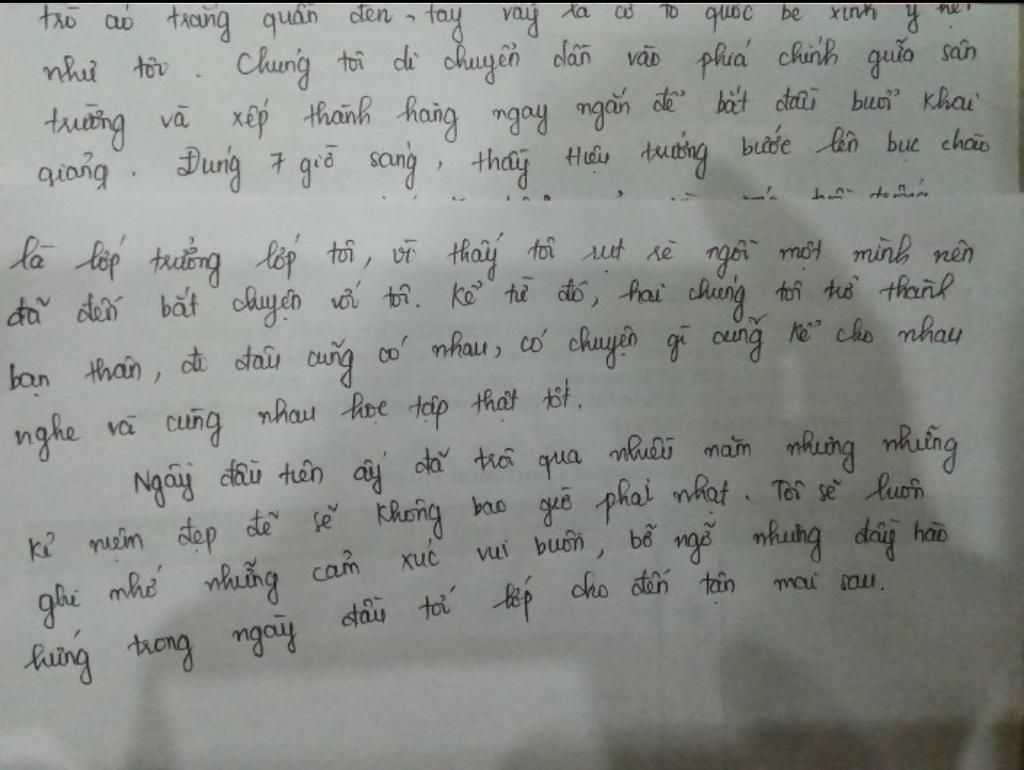 trò áo trắng quần đen, tay vẫy lá cờ tổ quốc bé xinh y hệt
như tôi. Chúng tôi di chuyển dần vào phía chính giữa sân
trường và xếp thành hàng ngay ngắn để bắt đầu buổi khai
giảng. Đúng 7 giờ sáng, thầy Hiệu trưởng bước lên bục chào
là lớp trưởng lớp tôi, vì thấy tôi rụt rè ngồi một mình nên
đã đến bắt chuyện với tôi. Kể từ đó, hai chúng tôi trở thành
bạn thân, đi đâu cũng có nhau, có chuyện gì cũng kể cho nhau
nghe và cùng nhau học tập thật tốt.
Ngày đầu tiên ấy đã trôi qua nhiều năm nhưng những
kỉ niệm đẹp đẽ sẽ không bao giờ phai nhạt. Tôi sẽ luôn
ghi nhớ những cảm xúc vui buồn, bỡ ngỡ nhưng đầy hào
hứng trong ngày đầu tới lớp cho đến tận mai sau.